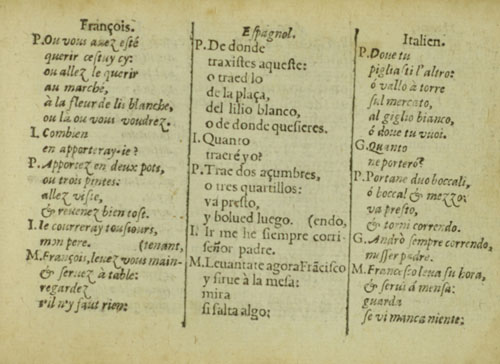 François.
P. Ou vous auez esté
querir cestuy cy:
ou allez le querir
au marché,
à la fleur de lis blanche,
ou là ou vous voudrez.
I. Combien
en apporteray-ie?
P. Apportez en deux pots,
ou trois pintes:
allez viste,
& reuenez bien tost.
I. Ie courreray tousiours,
mon pere. (tenant,
M. François, leuez vous main-
& seruez à table:
regardez
s'il n'y faut rien:
Espagnol.
P. De donde
traxistes aqueste:
o traed lo
de la plaça,
del lilio blanco,
o de donde quesieres.
I. Quanto
traeré yo?
P. Trae dos açumbres,
o tres quartillos:
va presto,
y bolued luego. (endo,
I. Ir me he siempre corri-
señor padre.
M. Leuantate agora Frãcisco
y sirue à la mesa:
mira
si falta algo:
Italien.
P. Doue tu
pigliasti l'altro:
ó vallo à torre
sul mercato,
al giglio bianco,
ó doue tu vuoi.
G. Quanto
ne porterò?
P. Portane duo boccali,
ó boccal & mezzo:
va presto,
& torni correndo.
G. Andrò sempre correndo,
messer padre.
M. Francesco leua su hora,
& serui à mensa:
guarda
se vi manca niente: